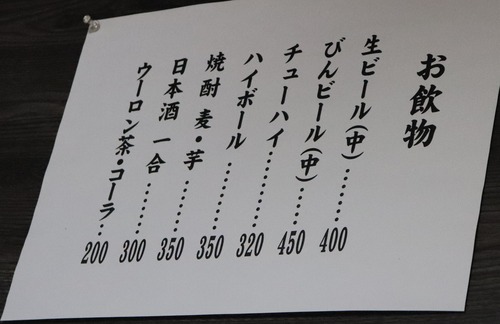 お飲物
生ビール(中)……400
びんビール(中)……450
チューハイ………320
ハイボール………350
焼酎 麦・芋………350
日本酒 一合………300
ウーロン茶・コーラ…200